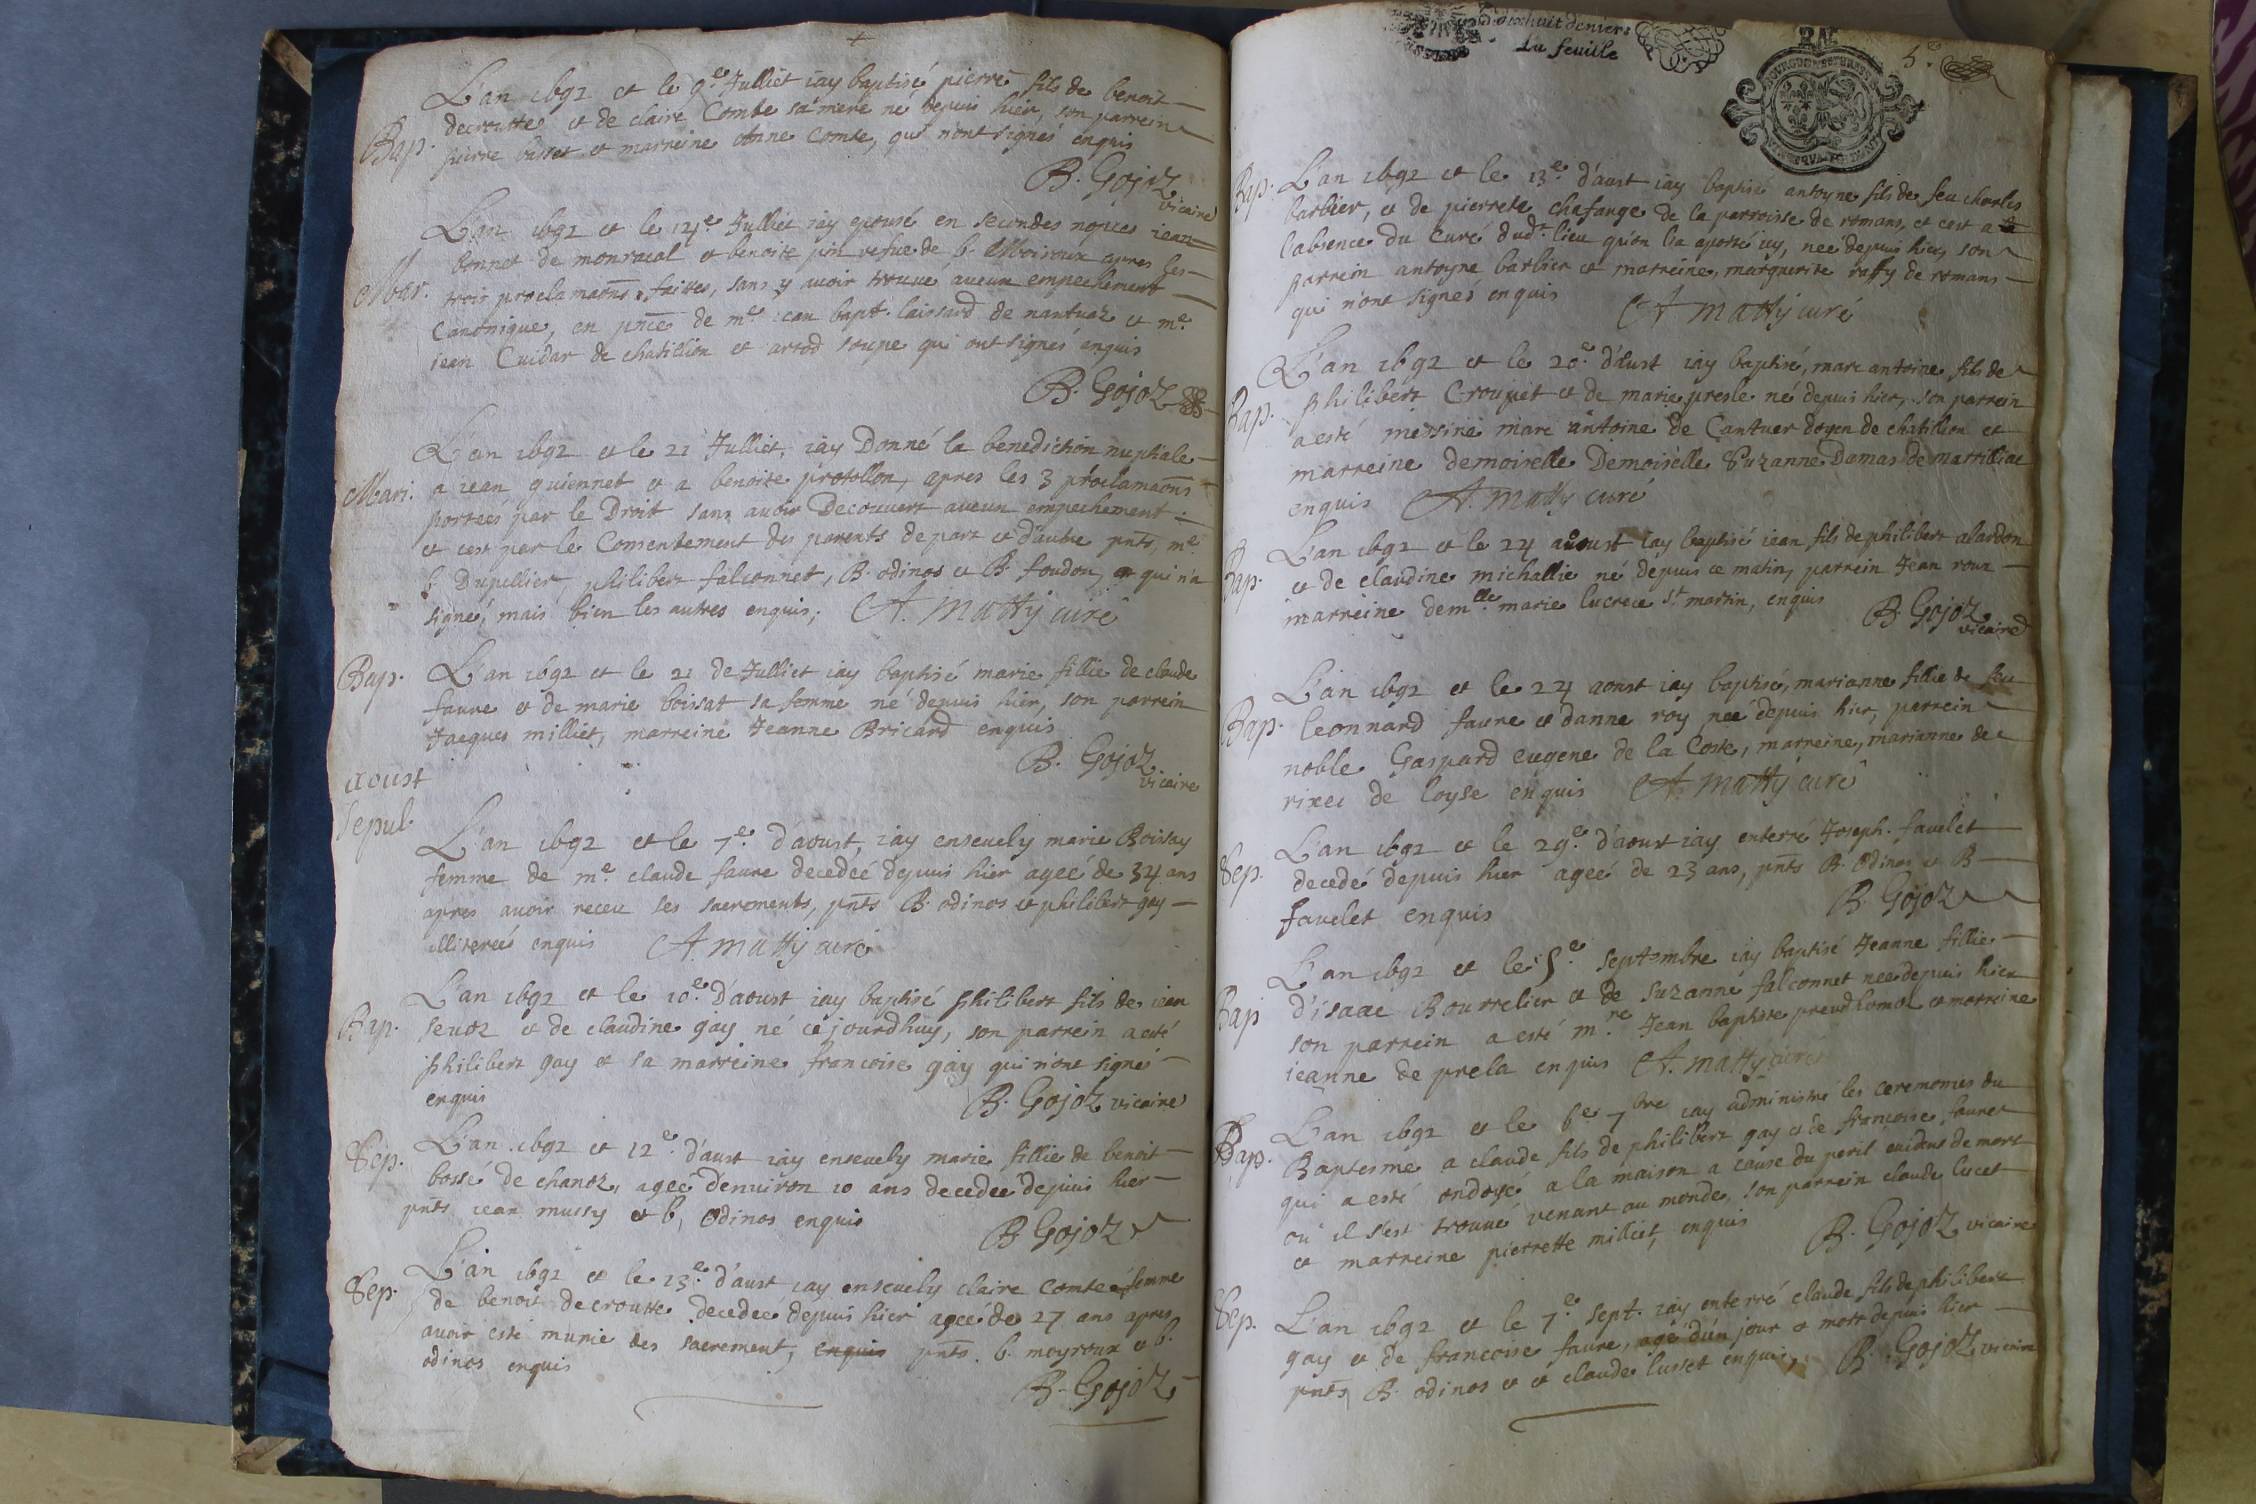 L'an 1692 et le 9e. Julliet iay baptisé pierre fils de benoit
decroutte et de claire Combe sa mere né depuis hier, son parrein
Bap. pierre busset et marreine Anne Comte, qui n'ont signés enquis
B. Gojoz vicaire
L'an 1692 et le 14e. Julliet iay epousé en secondes nopces iean
bonnet de monracal et benoite vefue de b. Moiroux apres les
Mar. trois proclamaons faites, sans y auoir trouué aucun empechement
Canonique, en pnce de me. iean bapt. laissard de nantuaz et me.
iean Cuidar de chatillion et artod soupe qui ont signés enquis
B. Gojoz
L'an 1692 et le 21 Julliet, iay Donné la benediction nuptiale
Mari. a iean guiennet et a benoite protollon, apres les 3 proclamaons
portées par le Droit sans auoir Decouuert aucun empechement
et cest par le Consentement des parents de part et d'autre pnts, me.
Dupellier, philibert falconnet, B. odinos et B. foudon, qui n'a
signé, mais bien les autres enquis; A. Matty curé
Bap. L'an 1692 et le 21 de Julliet iay baptisé marie fillie de claude
faure et de marie boissat sa femme né depuis hier, son parrein
Jacques milliet, marreine Jeanne Bricard enquis
B. Gojoz vicaire
aoust
Sepul.
L'an 1692 et le 7e. d'aoust, iay enseuely marie Boissay
femme de me. claude faure decedée depuis hier agée de 34 ans
apres auoir receu ses sacrements, pnts B. odinos et philibert gay
illiterés enquis A. Matty curé
L'an 1692 et le 10e. D'aoust iay baptisé philibert fils de iean
Bap. seuoz et de claudine gay né cejourdhuy, son parrein a esté
philibert gay et sa marreine francoise gay qui n'ont signés
enquis B. Gojoz vicaire
Sep. L'an 1692 et 12e. d'aust iay enseuely marie fillie de benoit
bossé de chanoz, agée d'enuiron 10 ans decedee depuis hier
pnts iean mussy et b, Odinos enquis
B Gojoz
Sep. L'an 1692 et le 13e. d'aust iay enseuely claire comte femme
de benoit decroutte decedee depuis hier agée de 27 ans apres
auoir esté munie des sacrement, enquis pnts b. moyroux et b.
odinos enquis
B. Gojoz
dixhuit deniers
La feuille
5e.
Bap. L'an 1692 et le 13e. d'aust iay baptisé antoyne fils de feu charles
barbier, et de pierrete chafange de la parroisse de romans, et cest a
l'absence du Curé dudt. lieu qu'on la aporté icy, nee depuis hier, son
parrein antoyne barbier et marreine, marguerite raffy de romans
qui n'ont signés enquis A Matty curé
L'an 1692 et le 20e. d'aust iay baptisé, marc antoine fils de
Bap. philibert Croupet et de marie presle né depuis hier, son parrein
a esté messire marc antoine de Cantuer doyen de chatillion et
marreine demoiselle Demoiselle Suzanne Damas de marilliac
enquis A. Matty curé
Bap. L'an 1692 et le 24 auoust iay baptisé iean fils de philibert alardon
et de claudine michallie né depuis ce matin, parrein Jean roux
marreine demelle marie lucrece st. martin, enquis B. Gojoz
vicaire
L'an 1692 et le 24 aoust iay baptisé, marianne fillie de feu
Bap. leonnard faure et danne roy nee depuis hier, parrein
noble Gaspard eugene de la Coste, marreine, marianne de
rixei de loyse enquis A. Matty curé
L'an 1692 et le 29e. d'aoust iay enterré Joseph favelet
Sep. decedé depuis hier agée de 23 ans, pnts B. Odinos et B
favelet enquis B. Gojoz
L'an 1692 et le 5e. septembre iay baptisé Jeanne fillie
Bap d'isaac Bourrelier et de suzanne falconnet nee depuis hier
son parrein a esté mre. Jean baptiste preudhomme et marreine
ieanne de prela enquis A. Matty curé
L'an 1692 et le 6e 7bre iay administré les ceremonies du
Bap. Baptesme a claude fils de philibert gay et de francoise faure
qui a esté ondoyé a la maison a cause du peril euident de mort
ou il s'est trouué venant au monde, son parrein claude lucet
et marreine pierrette milliet, enquis B. Gojoz vicaire
Sep. L'an 1692 et le 7e. sept. iay enterré claude fils de philibert
gay et de francoise faure, agé d'un jour et mort depuis hier
pnts, B. odinos et et claude lusset enquis, B. Gojoz vicaire